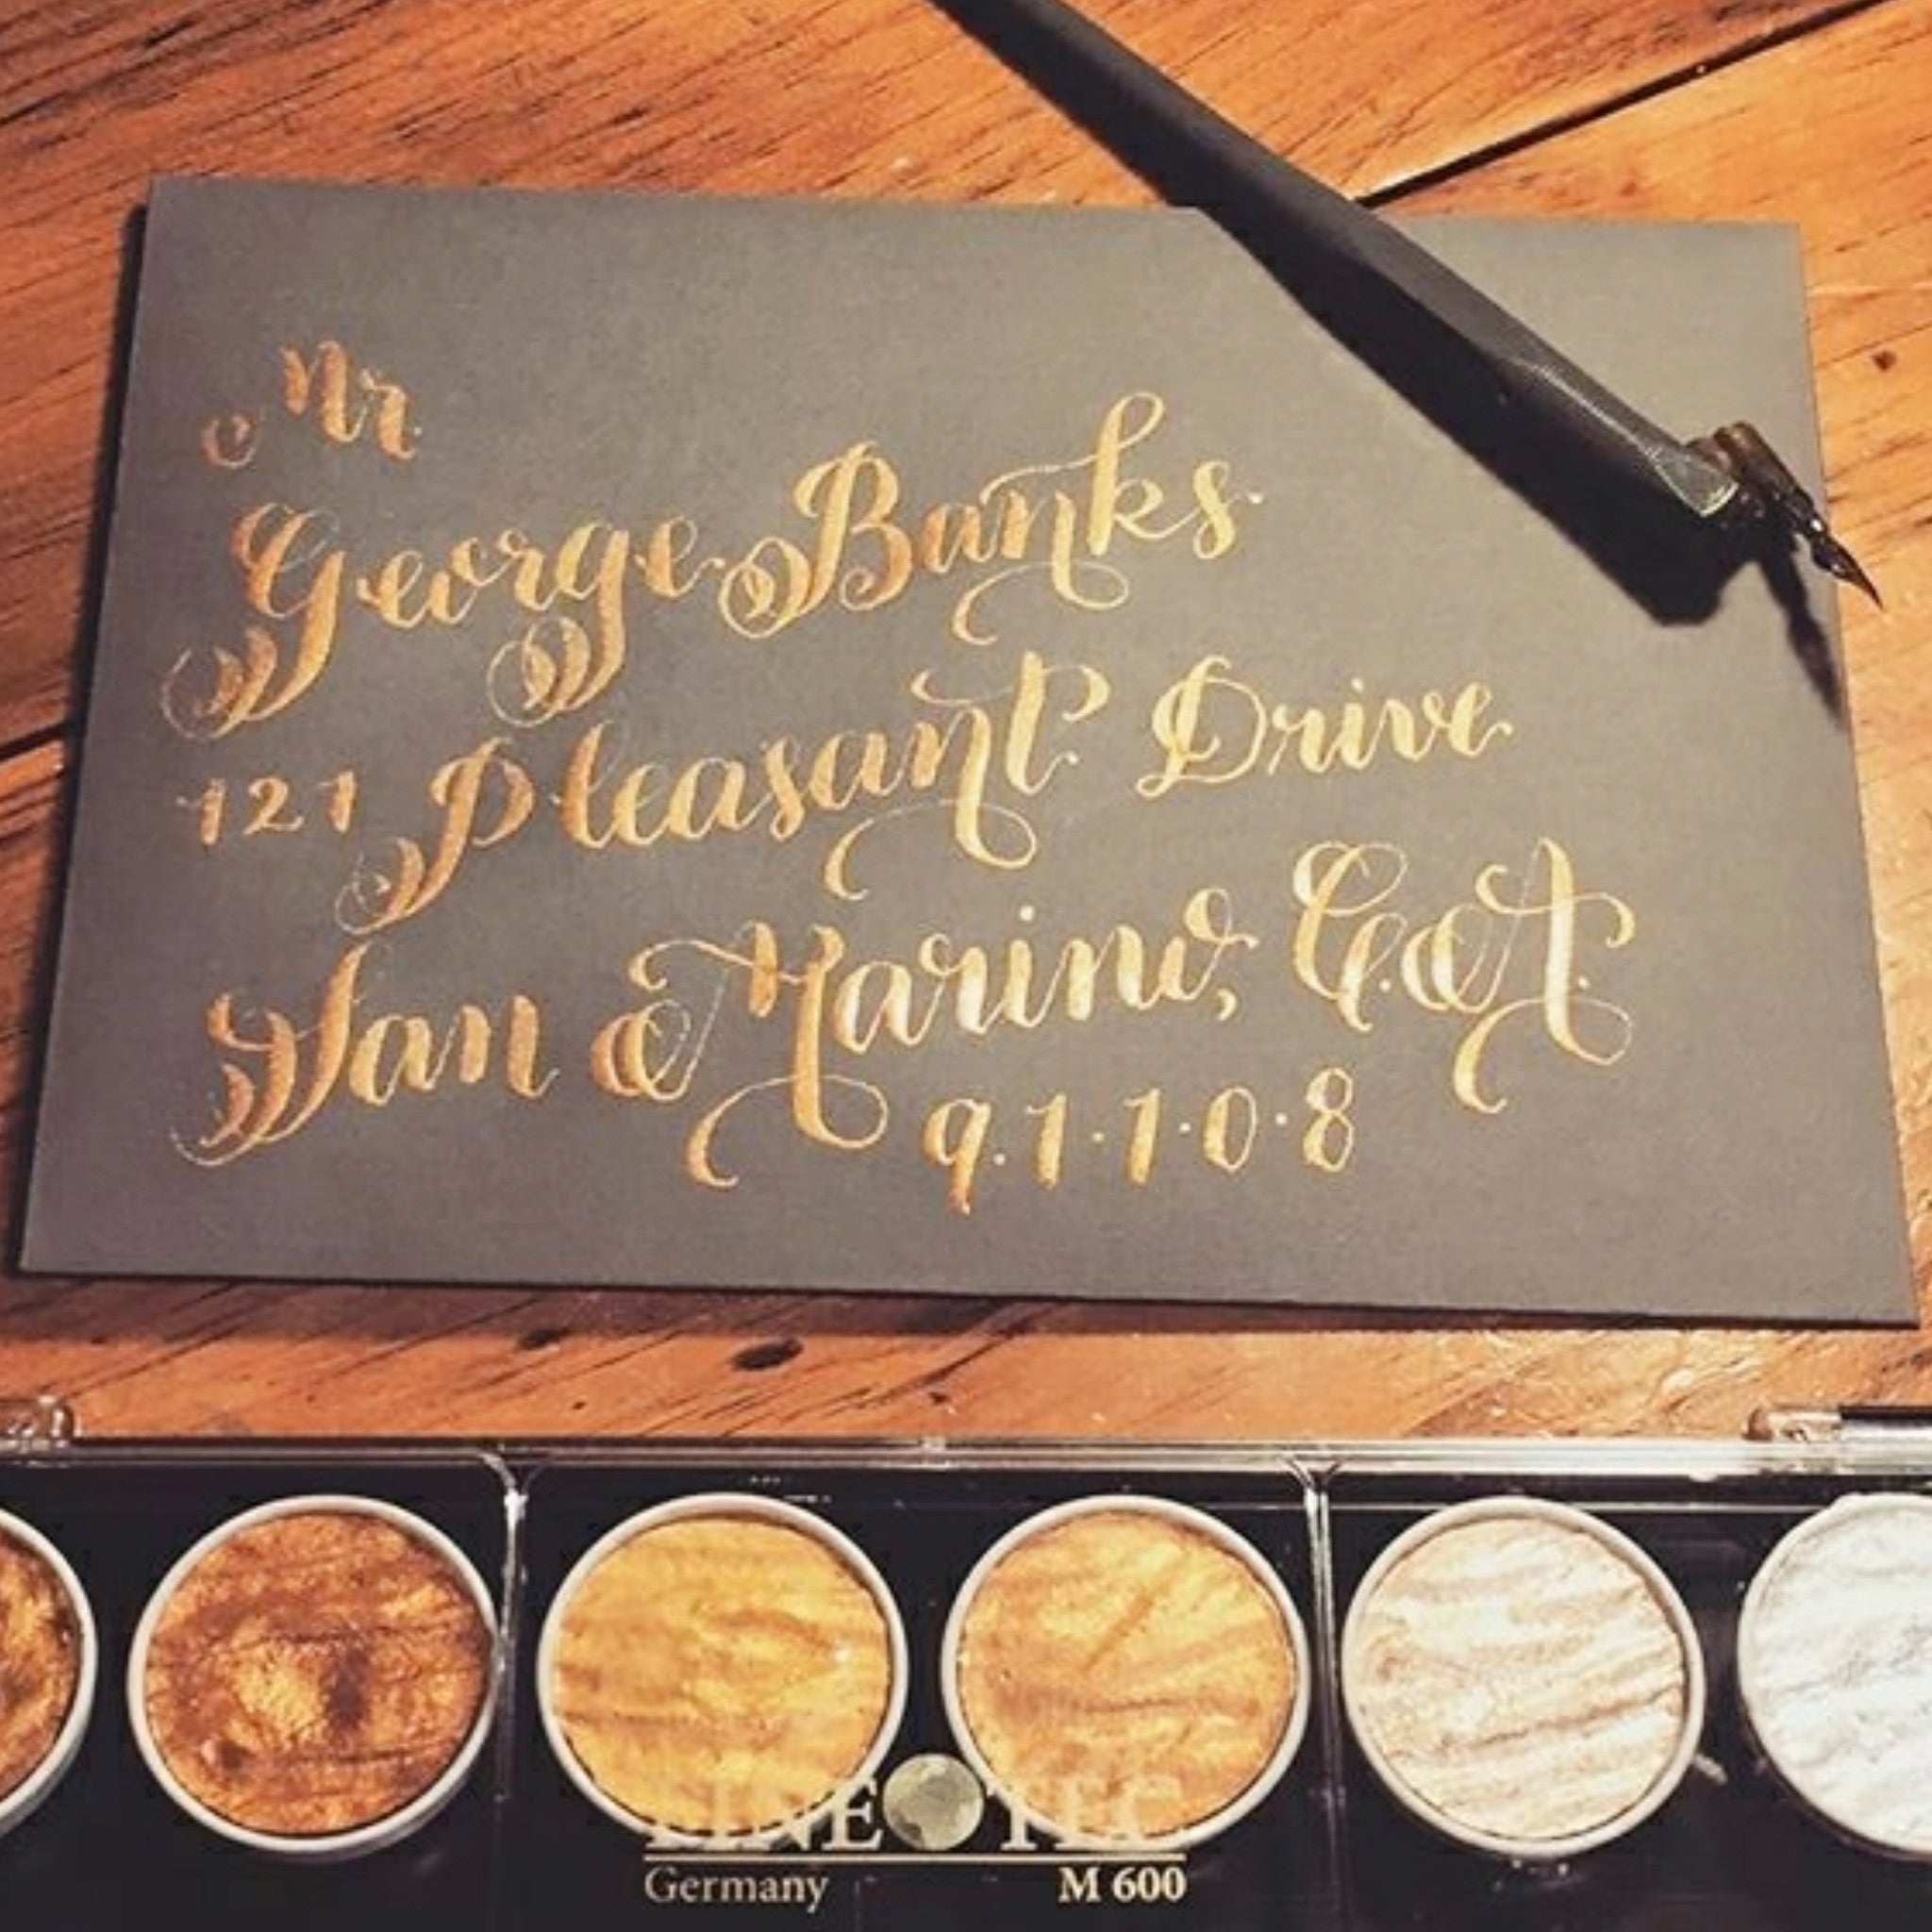 Mr.
George Banks
121 Pleasant Drive
San Marino, CA
9·1·1·0·8
FINETEC
Germany M 600